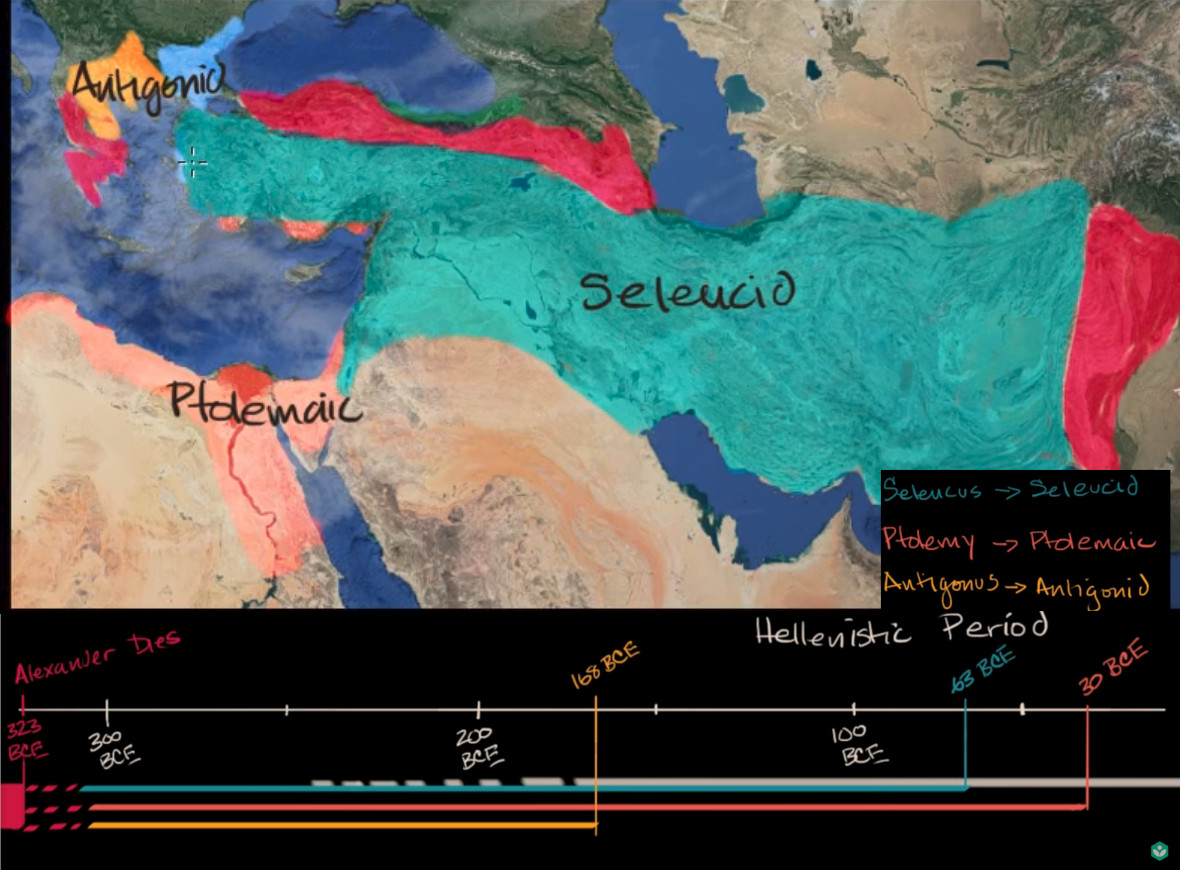 Antigonid
Seleucid
Ptolemaic
Seleucus → Seleucid
Ptolemy → Ptolemaic
Antigonus → Antigonid
Hellenistic Period
Alexander Dies
168 BCE
63 BCE
30 BCE
323
BCE
300
BCE
200
BCE
100
BCE